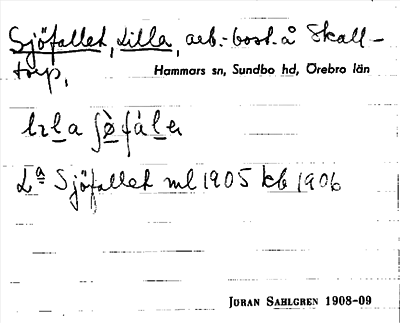 Sjöfallet, Lilla, arb.-bost. å Skall-
torp,
Hammars sn, Sundbo hd, Örebro län
Lª Sjöfallet ml 1905 kb 1906
JÖRAN SAHLGREN 1908-09